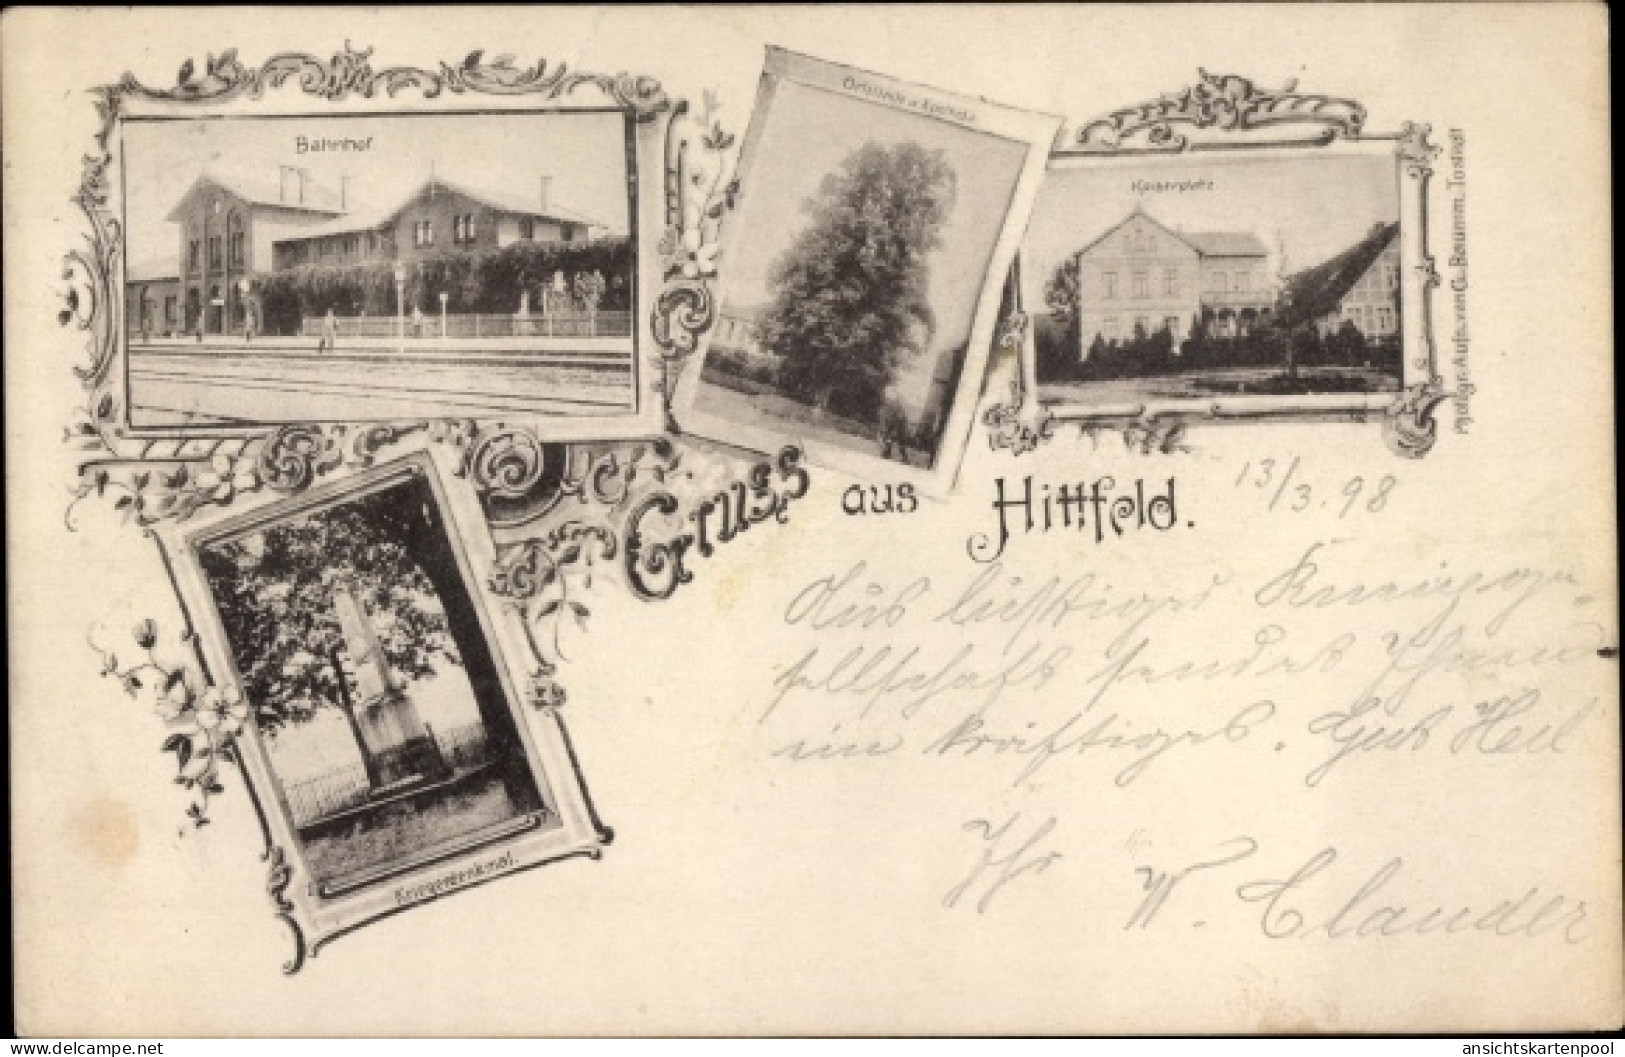 Bahnhof.
Ortslinde u. Apotheke.
Kaiserplatz
Photogr. Aufn. von G. Baumm, Tostedt
Kriegerdenkmal.
Gruss aus Hittfeld.
13/3.98
Aus lustiger Kneipge-
sellschaft sendet Ihnen
ein kräftiges. Gut Heil
Ihr W. Clauder
delcampe.net
ansichtskartenpool